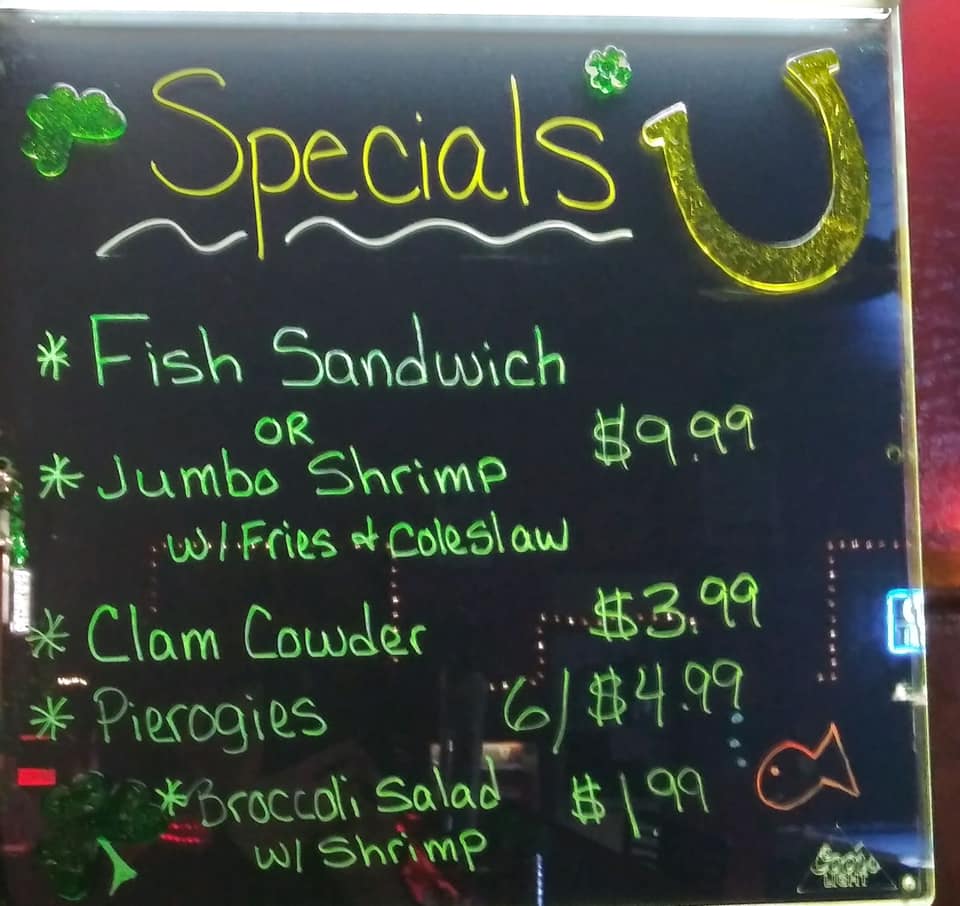 Specials
* Fish Sandwich
OR
$9.99
* Jumbo Shrimp
w/ Fries & Coleslaw
* Clam Cowder $3.99
* Pierogies 6/$4.99
*Broccoli Salad $1.99
w/ Shrimp
Coors
LIGHT